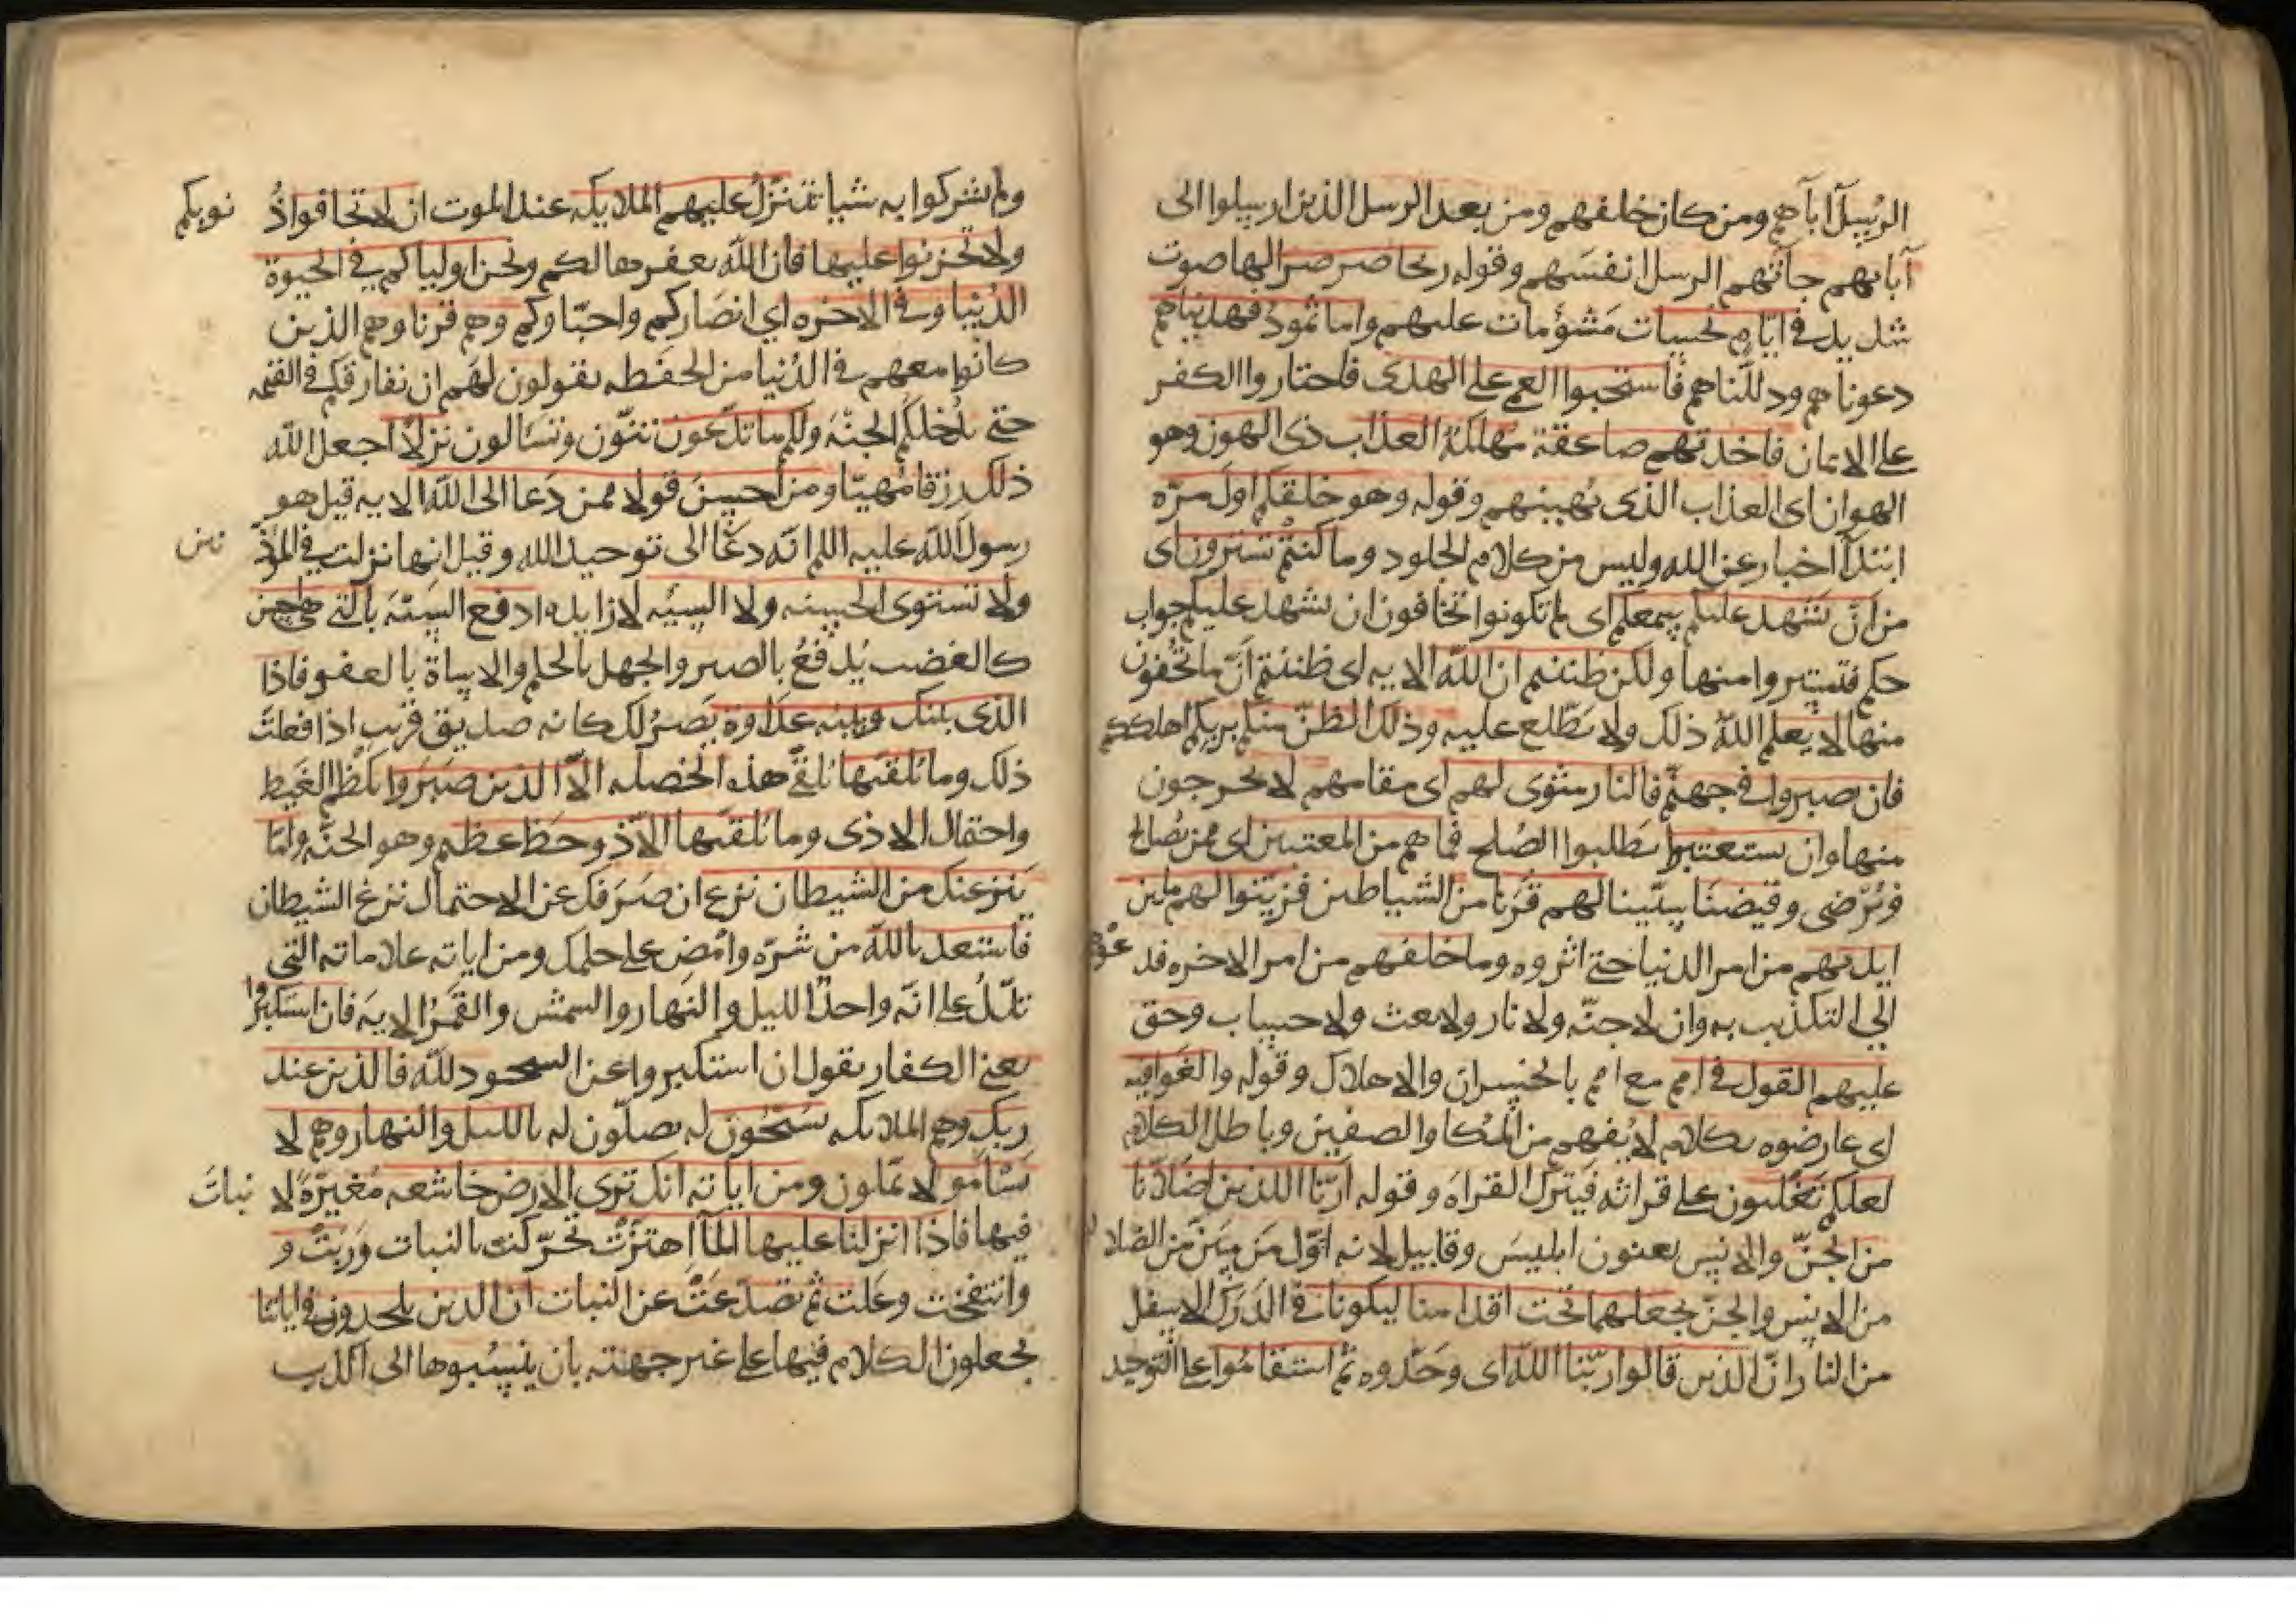 الرسل آباهم ومن كان خلفهم ومن بعد الرسل الذين ارسلوا الى
آبايهم جآتهم الرسل انفسهم وقوله ريحا صرصرا لها صوت
شديد في ايام نحسات مشؤمات عليهم واما ثمود فهديناهم
دعوناهم ودللناهم فاستحبوا العمى على الهدى فاختاروا الكفر
على الايمان فاخذتهم صاعقة مهلكة العذاب ذى الهون وهو
الهوان اى العذاب الذى يهينهم وقوله وهو خلقكم اول مره
ابتدآ اخبار عن الله وليس من كلام الجلود وما كنتم تستترون اى
من ان يشهد عليكم سمعكم اى لم تكونوا تخافون ان يشهد عليكم جواب
حكم فتستتروا منها ولكن ظننتم ان الله الايه اى ظننتم ان ما تخفون
منها لا يعلم الله ذلك ولا يطلع عليه وذلك الظن منكم بربكم اهلككم
فان صبروا في جهنم فالنار مثوى لهم اى مقامهم لا يخرجون
منها وان يستعتبوا يطلبوا الصلح فما هم من المعتبين اى ممن يصالح
ويرضى وقيضنا سببنا لهم قرنا من الشياطين فزينوا لهم ما بين
ايديهم من امر الدنيا حتى اثروه وما خلفهم من امر الاخره فدعوهم
الى التكذيب به وان لا جنه ولا نار ولا بعث ولا حساب وحق
عليهم القول في امم مع امم بالخسران والاهلاك وقوله والغوا فيه
اى عارضوه بكلام لا يفهم من المكا والصفير وباطل الكلام
لعلكم تغلبون على قراته فيترك القراه وقوله ارنا اللذين اضلانا
من الجن والانس يعنون ابليس وقابيل لانه اول من سن الضلال
من الانس والجن نجعلهما تحت اقدامنا ليكونا في الدرك الاسفل
من النار ان الذين قالوا ربنا الله اى وحدوه ثم استقاموا على التوحيد
ولم يشركوا به شيا تتنزل عليهم الملايكه عند الموت ان لا تخافوا ذنوبكم
ولا تحزنوا عليها فان الله يغفرها لكم ونحن اولياكم في الحيوة
الدنيا وفي الاخره اي انصاركم واحباوكم وهم قرنا وهم الذين
كانوا معهم في الدنيا من الحفظه يقولون لهم لن نفارقكم في القيمه
حتى ندخلكم الجنه ولكم ما تدعون تتمنون وتسالون نزلا اجعل الله
ذلك رزقا مهيا ومن احسن قولا ممن دعا الى الله الايه قيل هو
رسول الله عليه السلم انه دعا الى توحيد الله وقيل انها نزلت في الموذنين
ولا تستوى الحسنه ولا السيه لا زايده ادفع السيئة بالتي هي احسن
كالغضب يدفع بالصبر والجهل بالحلم والاساة بالعفو فاذا
الذى بينك وبينه عداوة يصير لك كانه صديق قريب اذا فعلت
ذلك وما يلقيها يلقى هذه الخصله الا الذين صبروا بكظم الغيظ
واحتمال الاذى وما يلقيها الا ذو حظ عظيم وهو الجنه واما
ينزغنك من الشيطان نزغ ان صرفك عن الاحتمال نزغ الشيطان
فاستعذ بالله من شره وامض على حلمك ومن اياته علاماته التي
تدل على انه واحد الليل والنهار والشمس والقمر الايه فان استكبروا
يعنى الكفار يقول ان استكبروا عن السجود لله فالذين عند
ربك وهم الملايكه يسبحون له يصلون له بالليل والنهار وهم لا
يسامو لا يملون ومن اياته انك ترى الارض خاشعه مغبرة لا نبات
فيها فاذا انزلنا عليها المآ اهتزت تحركت بالنبات وربت و
وانتفخت وعلت ثم تصدعت عن النبات ان الذين يلحدون في اياتنا
يجعلون الكلام فيها على غير جهته بان ينسبوها الى الكذب